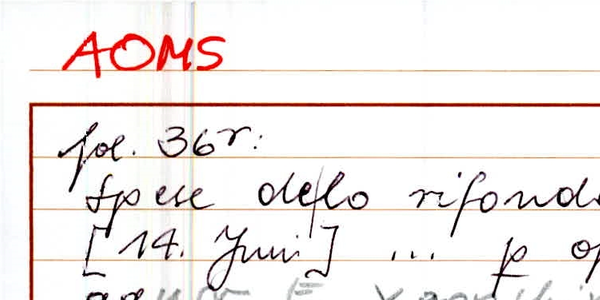 AOMS
fol. 36r:
Spese dello rifond
[14. Juni] ... p op